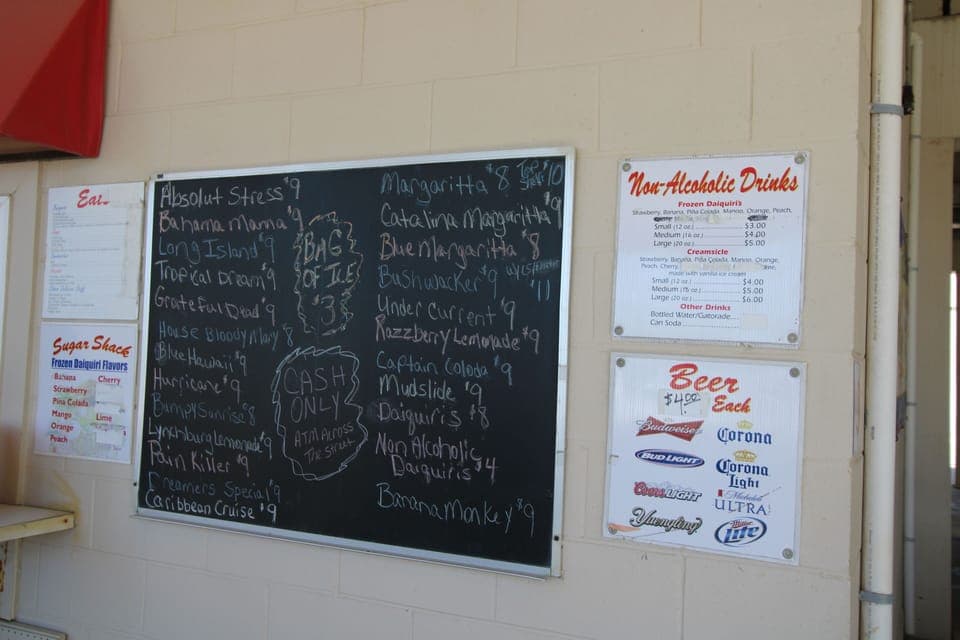 Eat
Sugar Shack
Frozen Daiquiri Flavors
Banana Cherry
Strawberry
Pina Colada
Mango Lime
Orange
Peach
Absolut Stress $9
Bahama Mama $9
Long Island $9
Tropical Dream $9
Grateful Dead $9
House Bloody Mary $8
Blue Hawaii $9
Hurricane $9
Bumpy Sunrise $8
Lynchburg Lemonade $9
Pain Killer $9
Dreamers Special $9
Caribbean Cruise $9
BAG
OF ICE
$3
CASH
ONLY
ATM Across
The street
Margaritta $8 Top Shelf $10
Catalina Margaritta $9
Blue Margaritta $8
Bushwacker $9
$11
Under Current $9
Razzberry Lemonade $9
Captain Coloda $9
Mudslide $9
Daiquiris $8
Non Alcoholic
Daiquiris $4
Banana Monkey $9
Non-Alcoholic Drinks
Frozen Daiquiri's
Strawberry, Banana, Piña Colada, Mango, Orange, Peach,
Small (12 oz.) $3.00
Medium (16 oz.) $4.00
Large (20 oz.) $5.00
Creamsicle
Strawberry, Banana, Piña Colada, Mango, Orange,
Peach, Cherry,
made with vanilla ice cream
Small (12 oz.) $4.00
Medium (16 oz.) $5.00
Large (20 oz.) $6.00
Other Drinks
Bottled Water/Gatorade
Can Soda
Beer
$4.00 Each
Budweiser
Corona
BUD LIGHT
Corona
Light
Coors LIGHT
Michelob
ULTRA
Yuengling
Miller
Lite